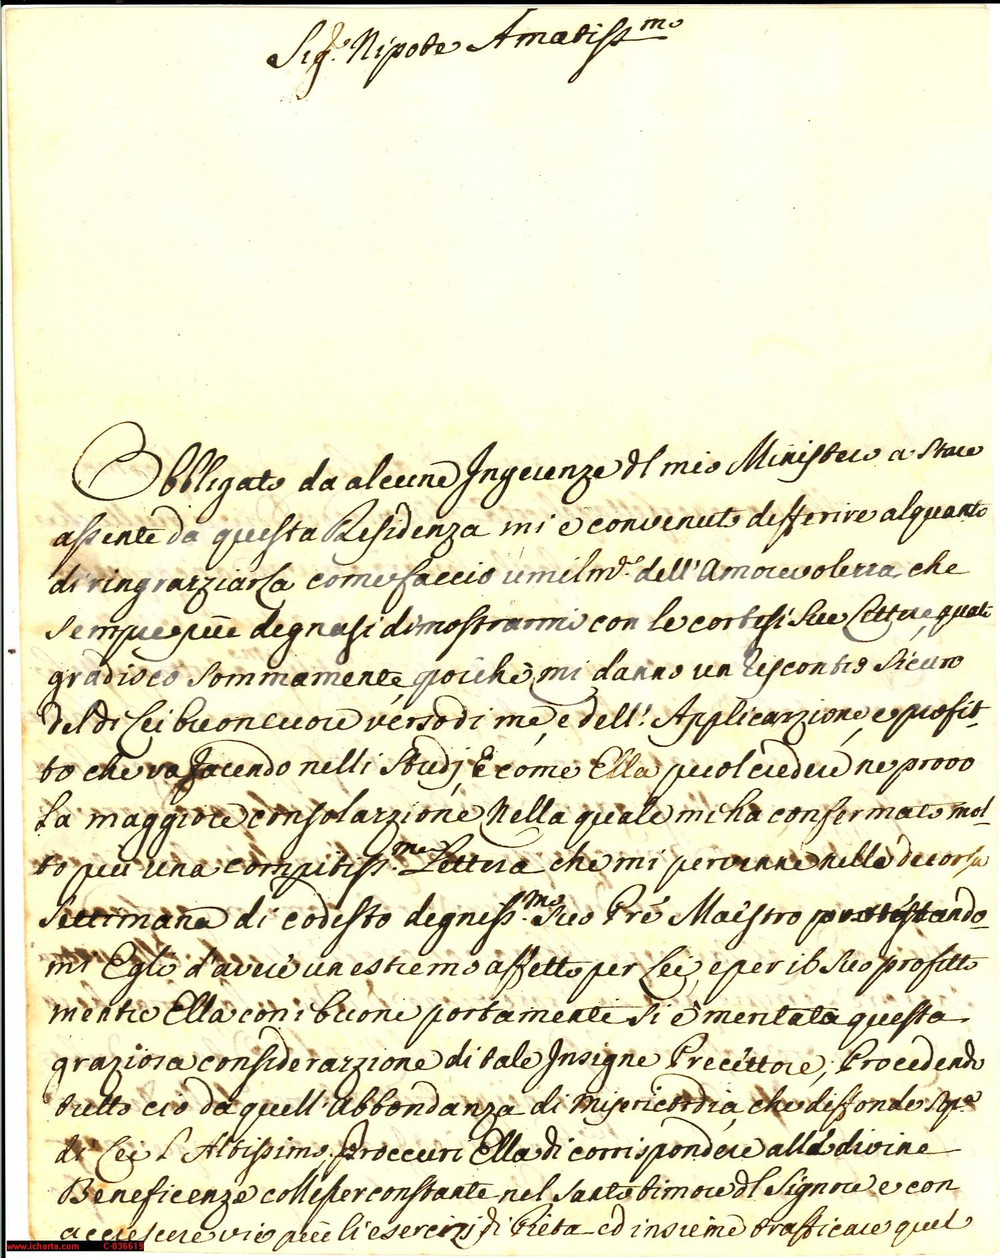 Sig.r Nipote Amatiss.mo
Obbligato da alcune Ingerenze dl mio Ministero a stare
assente da questa Residenza mi è convenuto defferire alquanto
di ringrazziarla come faccio umilm.e dell'Amorevolezza, che
sempre più degnasi dimostrarmi con le cortesi sue Lettere, quali
gradisco sommamente, poiche mi danno un riscontro sicuro
del di Lei buon cuore verso di me, e dell'Applicazzione, e profit-
to che va facendo nelli Studj, E come Ella puol credere, ne provo
la maggiore consolazzione, nella quale mi ha confermato mol-
to più una compitiss.ma Lettera che mi pervenne nella decorsa
Settimana di codesto degniss.mo suo Pre Maestro protestando-
mi Egli d'avere un estremo affetto per Lei, e per il suo profitto
mentre Ella con i buoni portamenti si è meritata questa
graziosa considerazzione di tale Insigne Precettore; Procedendo
tutto ciò da quell'Abbondanza di Misericordia, che diffonde sopa
di Lei l'Altissimo. Proccuri Ella di corrispondere alle divine
Beneficenze coll'esser constante nel santo timore dl Signore e con
accrescere vie più li esercizj di Pietà ed insieme trafficare quel
www.icharta.com C-036619